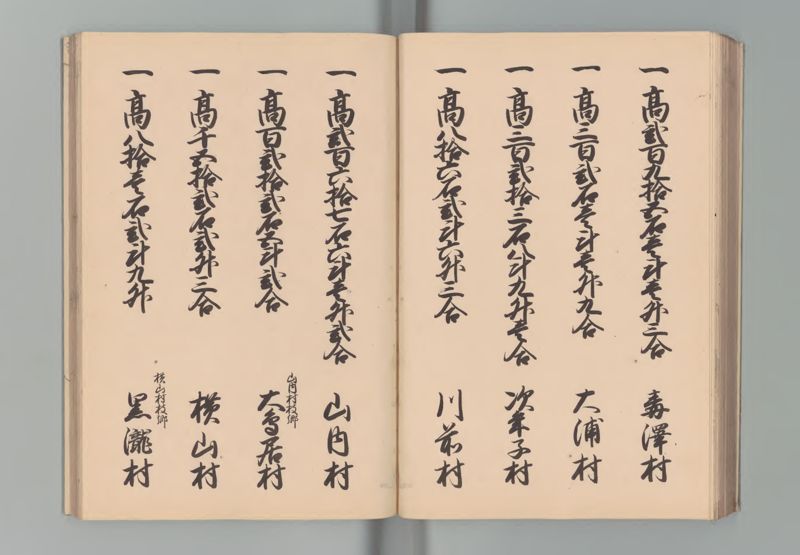 一 高貳百九拾五石壱斗壱升三合 毒澤村
一 高三百貳石壱斗壱升九合 大浦村
一 高三百貳拾三石八斗九升壱合 次年子村
一 高八拾六石貳斗六升三合 川前村
一 高貳百六拾七石六斗壱升貳合 山内村
一 高百貳拾貳石五斗貳合 山内村枝郷 大鳥居村
一 高千五拾貳石貳升三合 横山村
一 高八拾壱石貳斗九升 横山村枝郷 黒瀧村